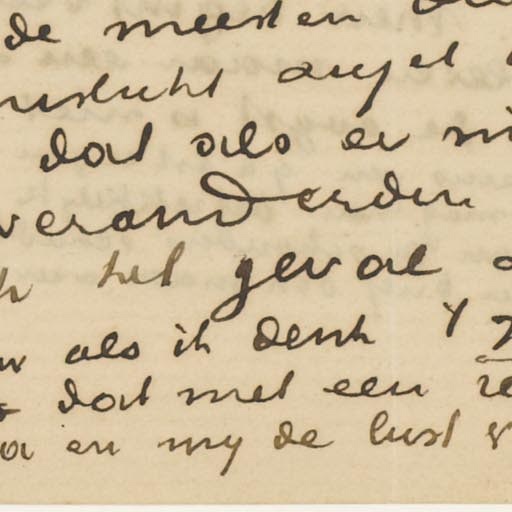 de meesten
dat als er
veranderden
het geval
als ik denk
dat met een
en my de lust